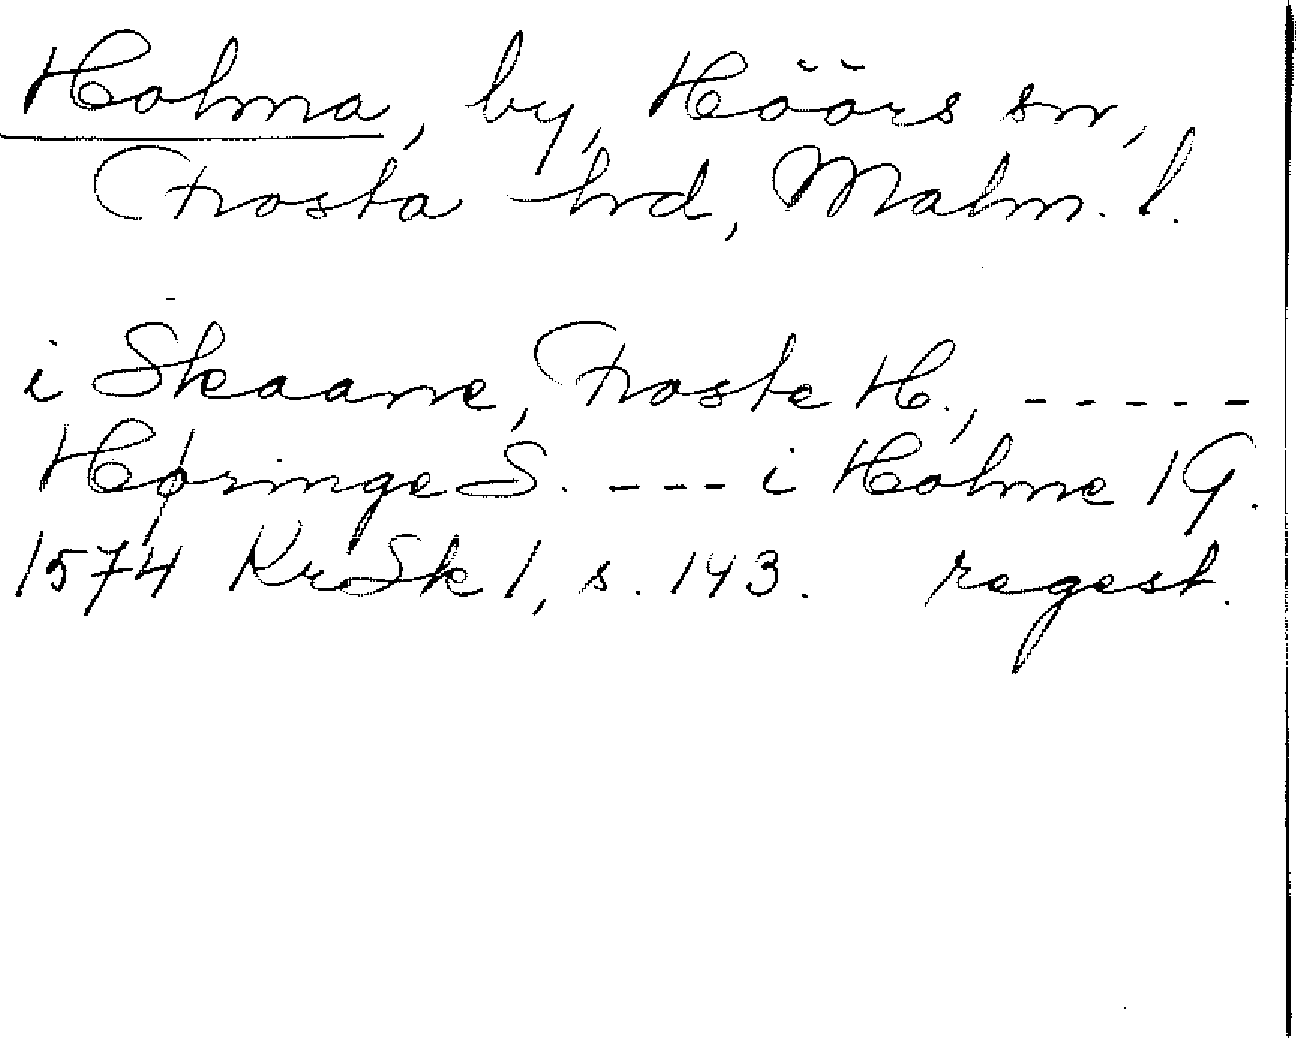 Holma, by, Höörs sn,
Frosta hrd, Malm. l.
i Skaane, Froste H., -----
Høringe S. --- i Holme 1 G.
1574 KrSk 1, s. 143. regest.